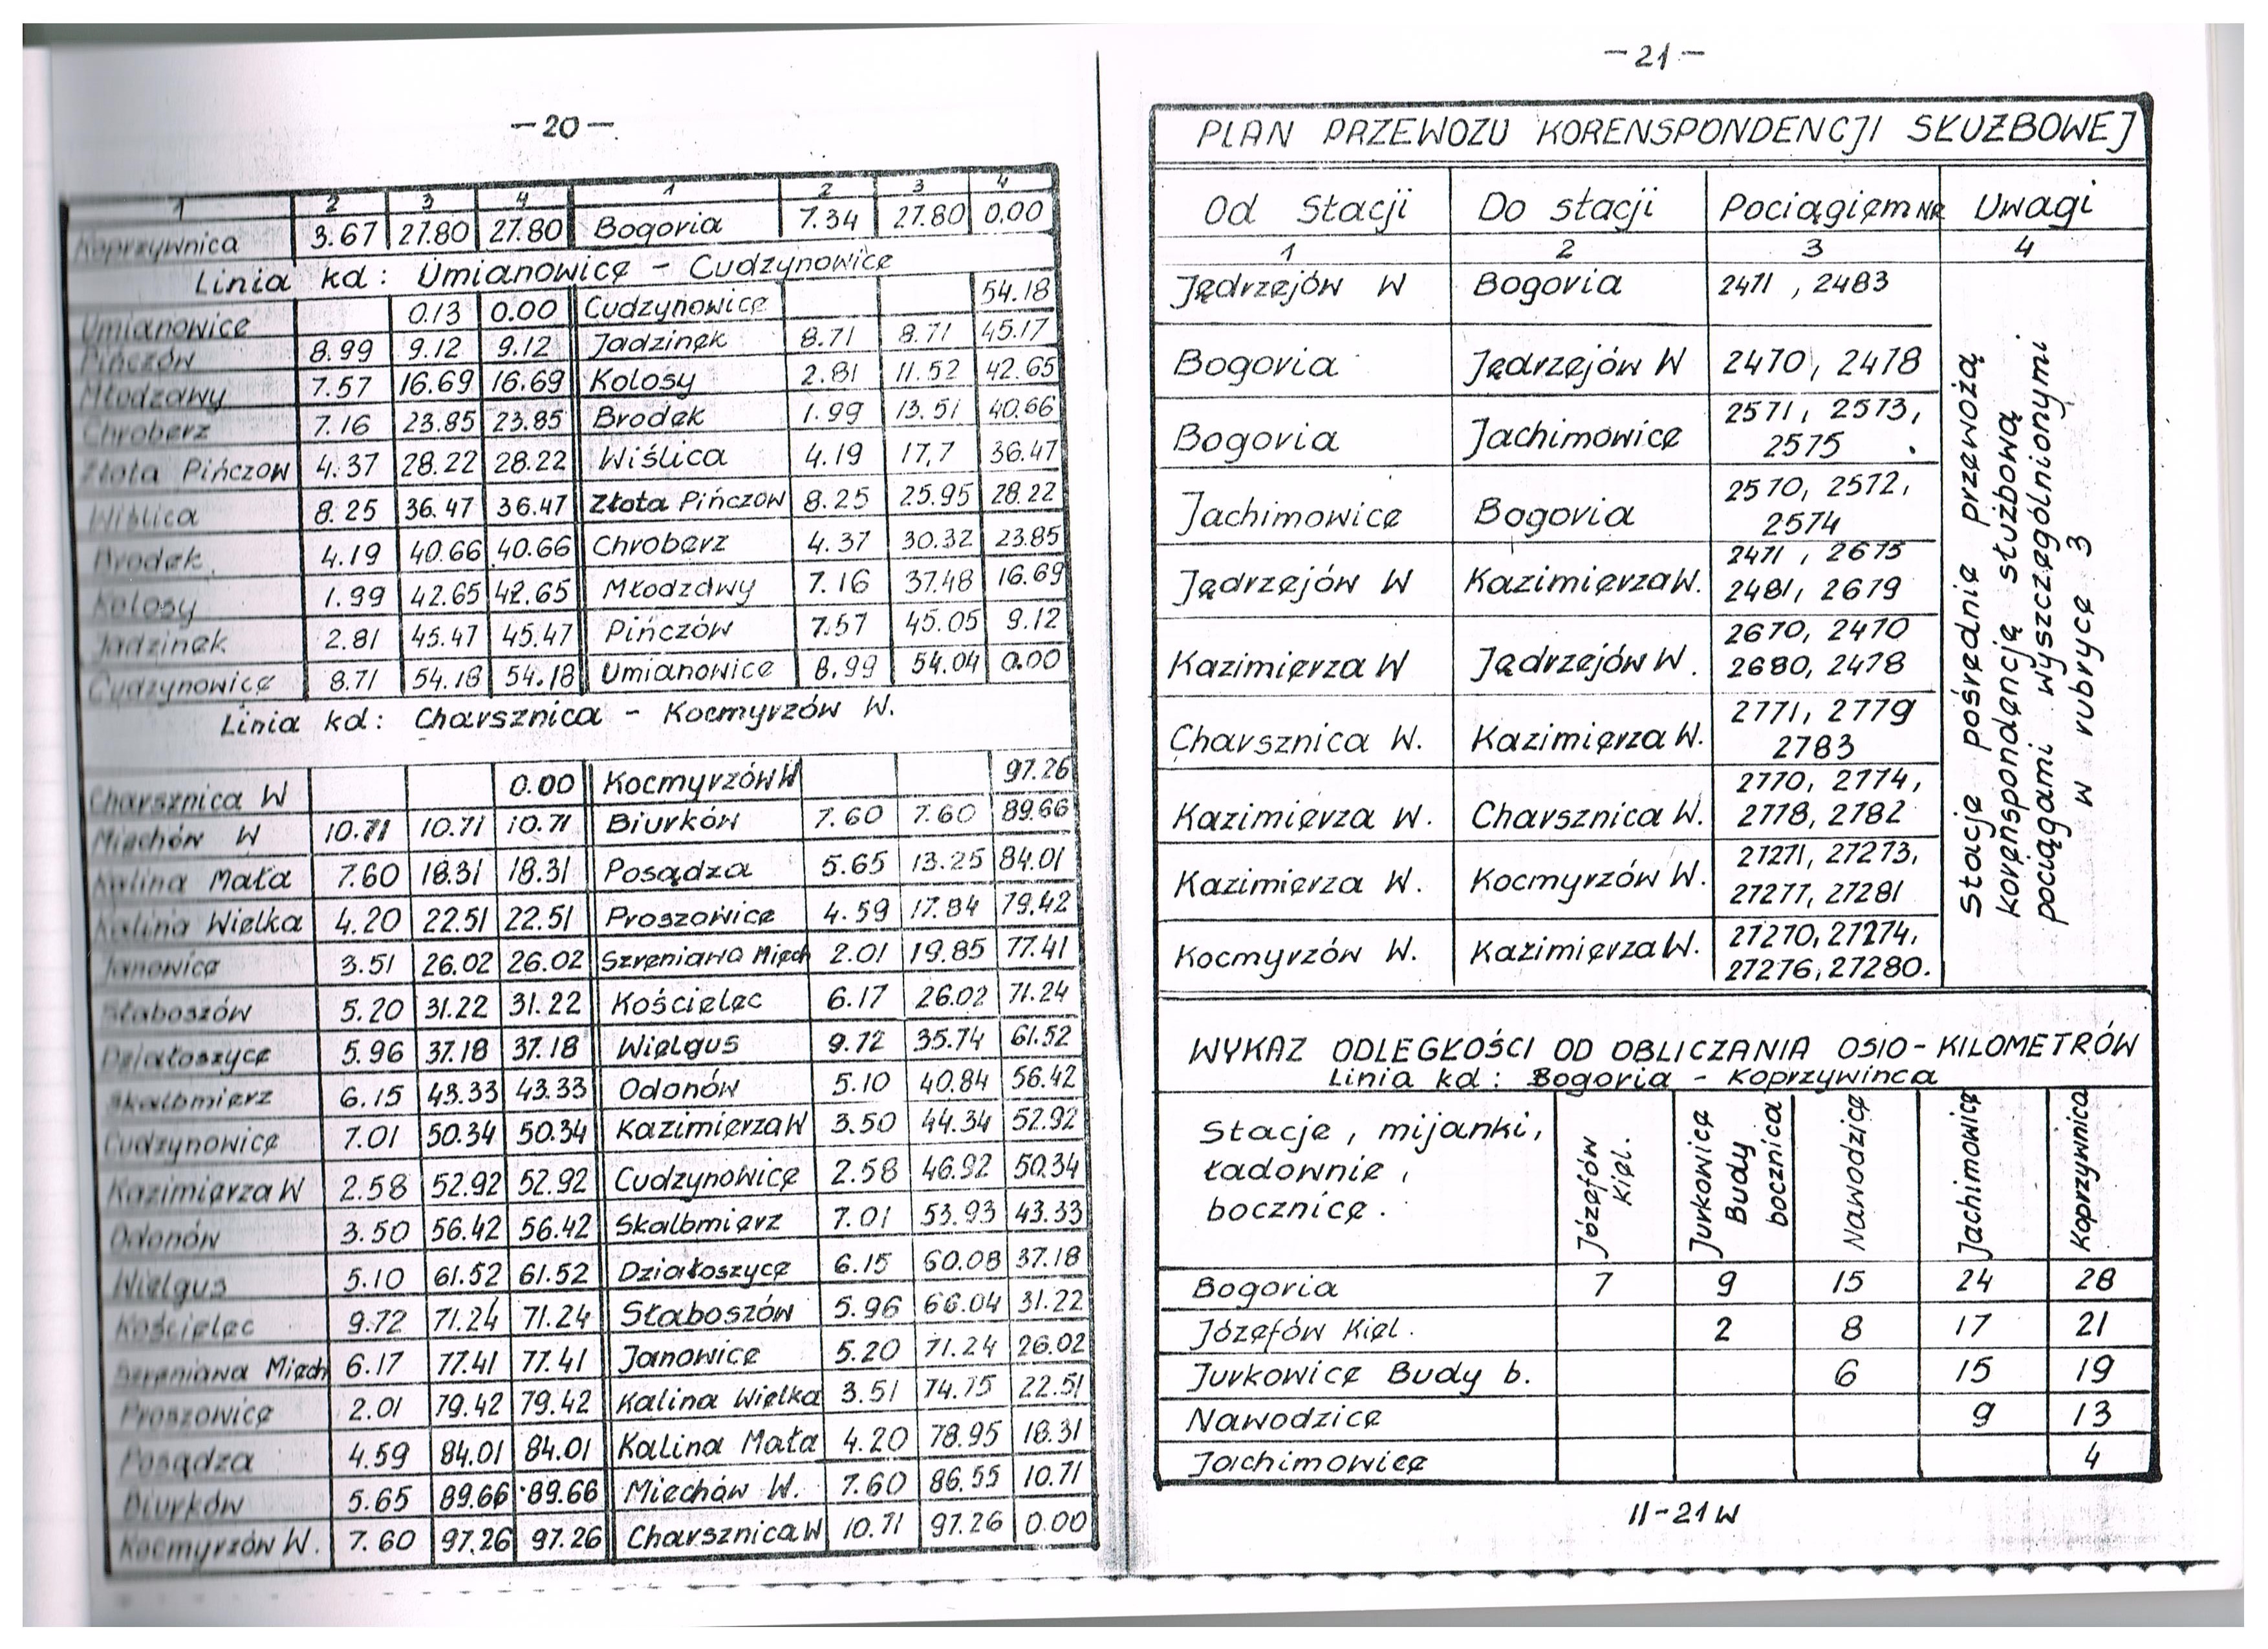 —20—
1 2 3 4 1 2 3 4
Koprzywnica 3.67 27.80 27.80 Bogoria 7.34 27.80 0.00
Linia kd: Umianowice - Cudzynowice
Umianowice 0.13 0.00 Cudzynowice 54.18
Pińczów 8.99 9.12 9.12 Jadzinek 8.71 8.71 45.17
Młodzawy 7.57 16.69 16.69 Kolosy 2.81 11.52 42.65
Chroberz 7.16 23.85 23.85 Brodek 1.99 13.51 40.66
Złota Pińczow 4.37 28.22 28.22 Wiślica 4.19 17,7 36.47
Wiślica 8.25 36.47 36.47 Złota Pińczow 8.25 25.95 28.22
Brodek 4.19 40.66 40.66 Chroberz 4.37 30.32 23.85
Kolosy 1.99 42.65 42.65 Młodzawy 7.16 37.48 16.69
Jadzinek 2.81 45.47 45.47 Pińczów 7.57 45.05 9.12
Cudzynowice 8.71 54.18 54.18 Umianowice 8.99 54.04 0.00
Linia kd: Charsznica - Kocmyrzów W.
Charsznica W 0.00 Kocmyrzów W 97.26
Miechów W 10.71 10.71 10.71 Biurków 7.60 7.60 89.66
Kalina Mała 7.60 18.31 18.31 Posądza 5.65 13.25 84.01
Kalina Wielka 4.20 22.51 22.51 Proszowice 4.59 17.84 79.42
Janowice 3.51 26.02 26.02 Szreniawa Miech 2.01 19.85 77.41
Słaboszów 5.20 31.22 31.22 Kościelec 6.17 26.02 71.24
Działoszyce 5.96 37.18 37.18 Wielgus 9.72 35.74 61.52
Skalbmierz 6.15 43.33 43.33 Odonów 5.10 40.84 56.42
Cudzynowice 7.01 50.34 50.34 Kazimierza W 3.50 44.34 52.92
Kazimierza W 2.58 52.92 52.92 Cudzynowice 2.58 46.92 50.34
Odonów 3.50 56.42 56.42 Skalbmierz 7.01 53.93 43.33
Wielgus 5.10 61.52 61.52 Działoszyce 6.15 60.08 37.18
Kościelec 9.72 71.24 71.24 Słaboszów 5.96 66.04 31.22
Szreniawa Miech 6.17 77.41 77.41 Janowice 5.20 71.24 26.02
Proszowice 2.01 79.42 79.42 Kalina Wielka 3.51 74.75 22.51
Posądza 4.59 84.01 84.01 Kalina Mała 4.20 78.95 18.31
Biurków 5.65 89.66 89.66 Miechów W. 7.60 86.55 10.71
Kocmyrzów W. 7.60 97.26 97.26 Charsznica W 10.71 97.26 0.00
—21—
PLAN PRZEWOZU KORENSPONDENCJI SŁUŻBOWEJ
Od Stacji Do stacji Pociągiem NR Uwagi
1 2 3 4
Jędrzejów W Bogoria 2471 , 2483
Bogoria Jędrzejów W 2470, 2478
Bogoria Jachimowice 2571, 2573,
2575
Jachimowice Bogoria 2570, 2572,
2574
Jędrzejów W Kazimierza W. 2471 , 2675
2481, 2679
Kazimierza W Jędrzejów W. 2670, 2470
2680, 2478
Charsznica W. Kazimierza W. 2771, 2779
2783
Kazimierza W. Charsznica W. 2770, 2774,
2778, 2782
Kazimierza W. Kocmyrzów W. 27271, 27273,
27277, 27281
Kocmyrzów W. Kazimierza W. 27270, 27274,
27276, 27280.
Stacje pośrednie przewożą
korenspondencję służbową
pociągami wyszczególnionymi
w rubryce 3
WYKAZ ODLEGŁOŚCI OD OBLICZANIA OSIO-KILOMETRÓW
Linia kd: Bogoria - Koprzywinca
Stacje, mijanki,
ładownie,
bocznice.
Józefów
Kiel.
Jurkowice
Budy
bocznica
Nawodzice
Jachimowice
Koprzywnica
Bogoria 7 9 15 24 28
Józefów Kiel. 2 8 17 21
Jurkowice Budy b. 6 15 19
Nawodzice 9 13
Jachimowice 4
II-21W